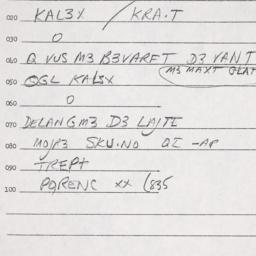 020 KALZX / KRA.T
030 O
040 Q VUS M3 B3VARET D3 VANT
M3 MAXT GLAT
050 OGL KALSX
060 O
070 DELANG M3 D3 LAJTI
080 SKU.NO QI -AP
090 TREPT
100 PQRENC XX (835